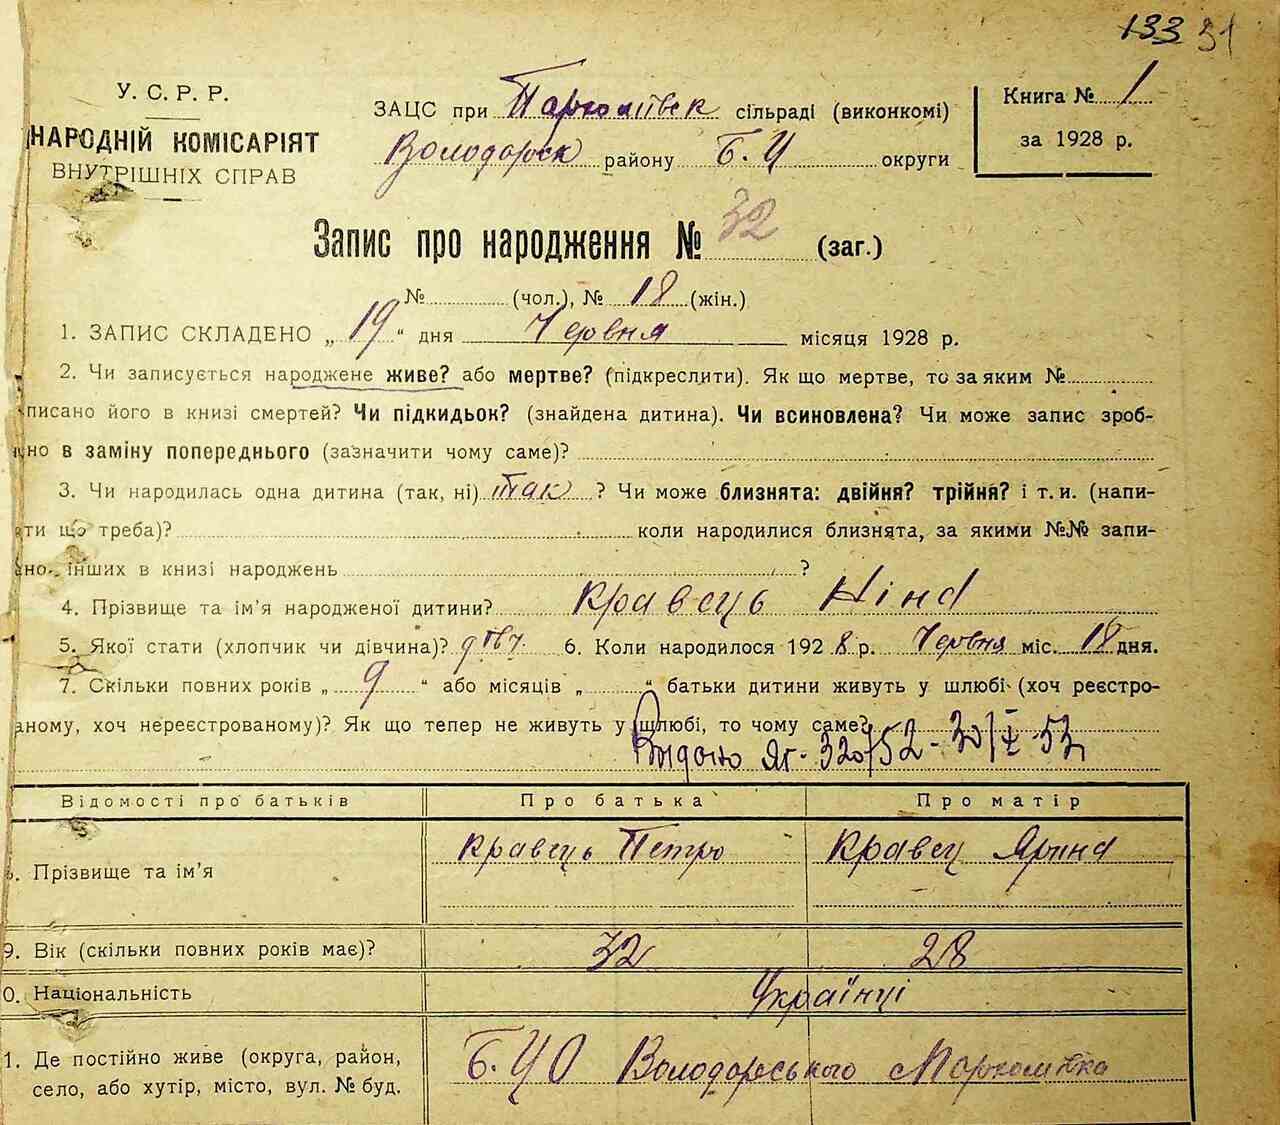 133 31
У. С. Р. Р.
НАРОДНІЙ КОМІСАРІЯТ
ВНУТРІШНІХ СПРАВ
ЗАЦС при Пархомівск сільраді (виконкомі)
Володарск району Б. Ц округи
Книга № 1
за 1928 р.
Запис про народження № 32 (заг.)
№ (чол.), № 18 (жін.)
1. ЗАПИС СКЛАДЕНО „ 19 “ дня Червня місяця 1928 р.
2. Чи записується народжене живе? або мертве? (підкреслити). Як що мертве, то за яким №
писано його в книзі смертей? Чи підкидьок? (знайдена дитина). Чи всиновлена? Чи може запис зроб-
но в заміну попереднього (зазначити чому саме)?
3. Чи народилась одна дитина (так, ні) так ? Чи може близнята: двійня? трійня? і т. и. (напи-
ти що треба)? коли народилися близнята, за якими №№ запи-
но інших в книзі народжень ?
4. Прізвище та ім’я народженої дитини? Кравець Ніна
5. Якої стати (хлопчик чи дівчина)? дівч. 6. Коли народилося 1928 р. Червня міс. 18 дня.
7. Скільки повних років „ 9 “ або місяців „ “ батьки дитини живуть у шлюбі (хоч реєстро-
аному, хоч нереєстрованому)? Як що тепер не живуть у шлюбі, то чому саме?
320/52 - 30/ 53
Відомості про батьків Про батька Про матір
Прізвище та ім’я Кравець Петро Кравец Ярина
9. Вік (скільки повних років має)? 32 28
0. Національність Українці
1. Де постійно живе (округа, район, село, або хутір, місто, вул. № буд. Б. Ц О Володарського Пархомівка